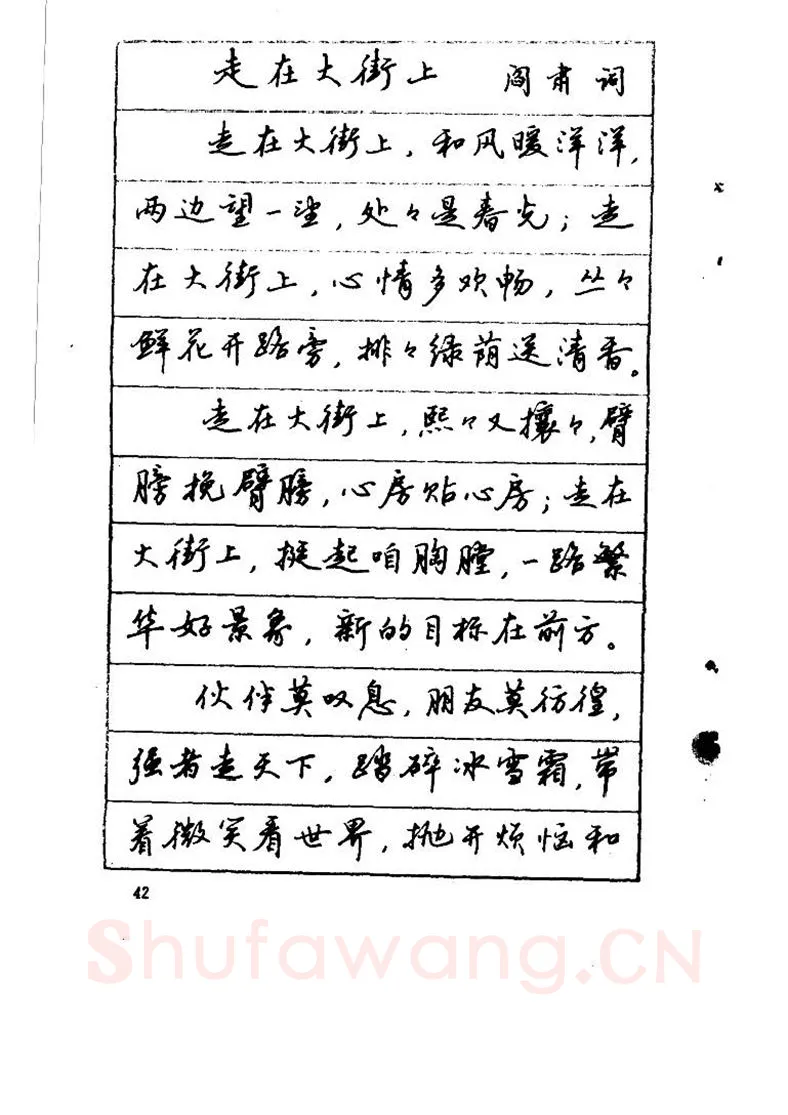 走在大街上 阎肃词
走在大街上，和风暖洋洋，
两边望一望，处々是春光；走
在大街上，心情多欢畅，丛々
鲜花开路旁，排々绿荫送清香。
走在大街上，熙々又攘々，臂
膀挽臂膀，心房贴心房；走在
大街上，挺起咱胸膛，一路繁
华好景象，新的目标在前方。
伙伴莫叹息，朋友莫彷徨，
强者走天下，踏碎冰雪霜，带
着微笑看世界，抛开烦恼和
42
Shufawang.CN